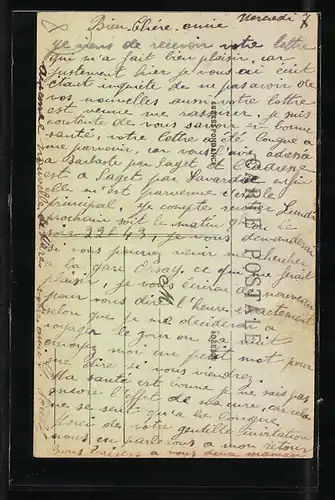 Mercredi
Bien Chère amie
je viens de recevoir votre lettre
qui m'a fait bien plaisir, car
justement hier je vous ai écrit
étant inquiète de ne pas avoir de
vos nouvelles aussi votre lettre
est venue me rassurer. je suis
contente de vous savoir en bonne
santé, votre lettre a été longue a
me parvenir, car vous avez adressé
a Barbaste par Saget et l'adresse
est a Saget par enfin
elle m'est parvenue c'est le
principal. Je compte rentrer Lundi
prochain soit le matin ou le
soir 22h43, je vous demanderai
si vous pouvez venir me chercher
a la gare Orsay, ce qui me ferait
plaisir, je vous écrirai de nouveau
pour vous dire l'heure exactement
selon que je me déciderai a
voyager le jour ou la nuit
envoyez moi un petit mot pour
me dire si vous viendrez.
Ma santé est bonne je ne sais pas
encore l'effet de ma cure, car cela
ne se sent qu'a la longue.
Merci de votre gentille invitation
nous en parlerons a mon retour
Bons baisers a vous deux maman
CARTE POSTALE
CORRESPONDANCE
ADRESSE
M